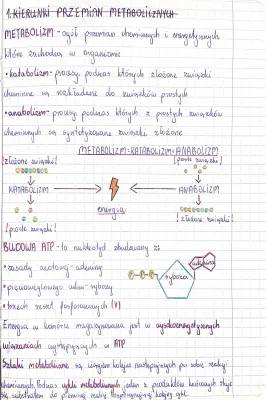 1. KIERUNKI PRZEMIAN METABOLICZNYCH
METABOLIZM - ogół przemian chemicznych i energetycznych
które zachodzą w organizmie
• katabolizm - procesy, podczas których złożone związki
chemiczne są rozkładane do związków prostych
• anabolizm - procesy, podczas których z prostych związków
chemicznych są syntetyzowane związki złożone
METABOLIZM = KATABOLIZM + ANABOLIZM
złożone związki! proste związki!
KATABOLIZM ANABOLIZM
energia
proste związki! złożone związki!
BUDOWA ATP - to nukleotyd zbudowany z:
• zasady azotowej - adeniny
• pięciowęglowego cukru - rybozy
• trzech reszt fosforanowych (P)
P P P ryboza adenina
Energia w komórce magazynowana jest w wysokoenergetycznych
wiązaniach występujących w ATP
Szlaki metaboliczne są ciągiem kolejno następujących po sobie reakcji
chemicznych. Podczas cyklu metabolicznego jeden z produktów końcowych staje
się substratem do pierwszej reakcji rozpoczynającej kolejny cykl.